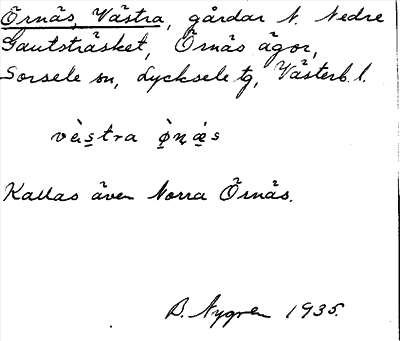 Örnäs, Västra, gårdar N. Nedre
Gautsträsket, Örnäs ägor,
Sorsele sn, Lycksele tg, Västerb. l.
vä̀stra ö̀ɳä̀s
Kallas även Norra Örnäs.
B. Nygren 1935.